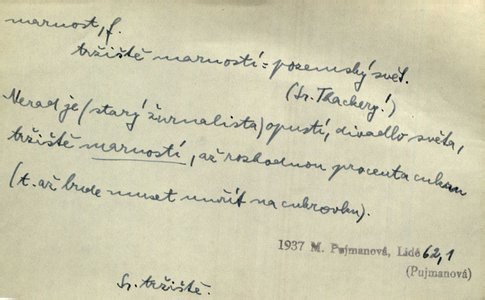 marnost, f.
tržiště marností = pozemský svět.
(Sr. Thackery!)
Nerad je (starý žurnalista) opustí, divadlo světa,
tržiště marností, až rozhodnou procenta cukru
(t. až bude muset umřít na cukrovku).
1937 M. Pujmanová, Lidé 62,1
(Pujmanová)
Sr. tržiště.